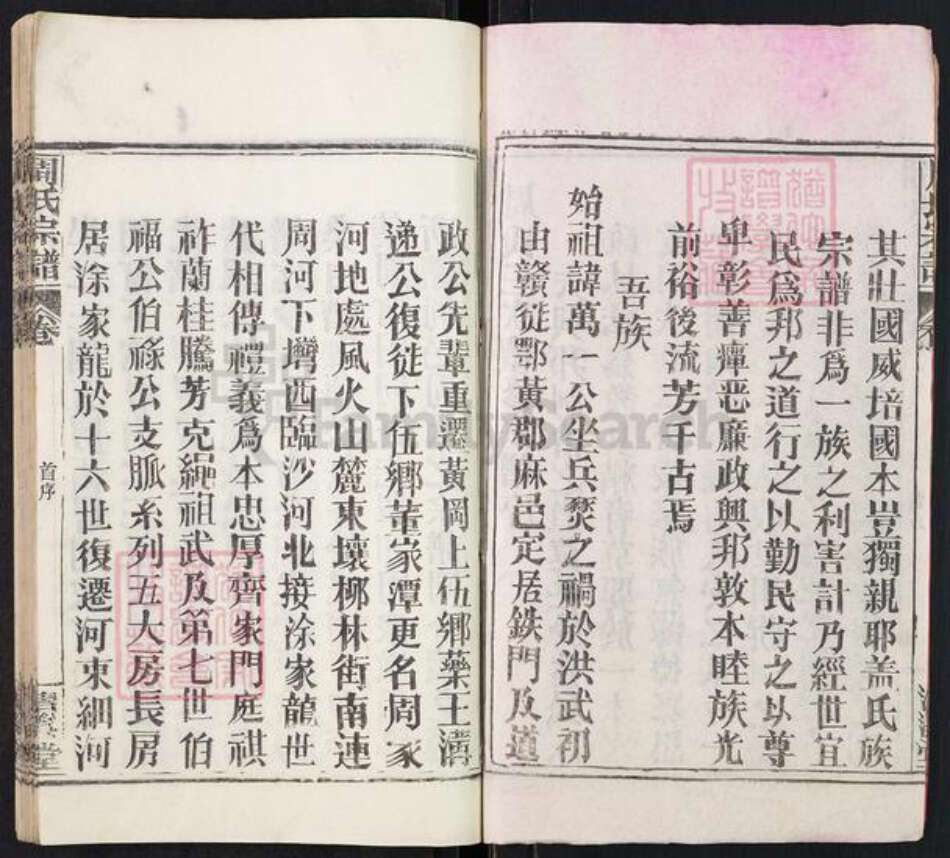 其壯國威培國本豈獨親耶盖氏族
宗譜非爲一族之利害計乃經世宜
民爲邦之道行之以勤民守之以尊
卑彰善癉惡廉政興邦敦本睦族光
前裕後流芳千古焉
吾族
始祖諱萬一公坐兵燹之禍於洪武初
由贛徙鄂黃郡麻邑定居鉄門及道
政公先輩重遷黃岡上伍鄉藥王溝
递公復徙下伍鄉董家潭更名周家
河地處風火山麓東壤柳林街南連
周河下壪酉臨沙河北接涂家龍世
代相傳禮義爲本忠厚齊家門庭祺
祚蘭桂騰芳克繩祖武及第七世伯
福公伯祿公支脈系列五大房長房
居涂家龍於十六世復遷河東細河
周氏宗譜
卷
首序
堂
FamilySearch